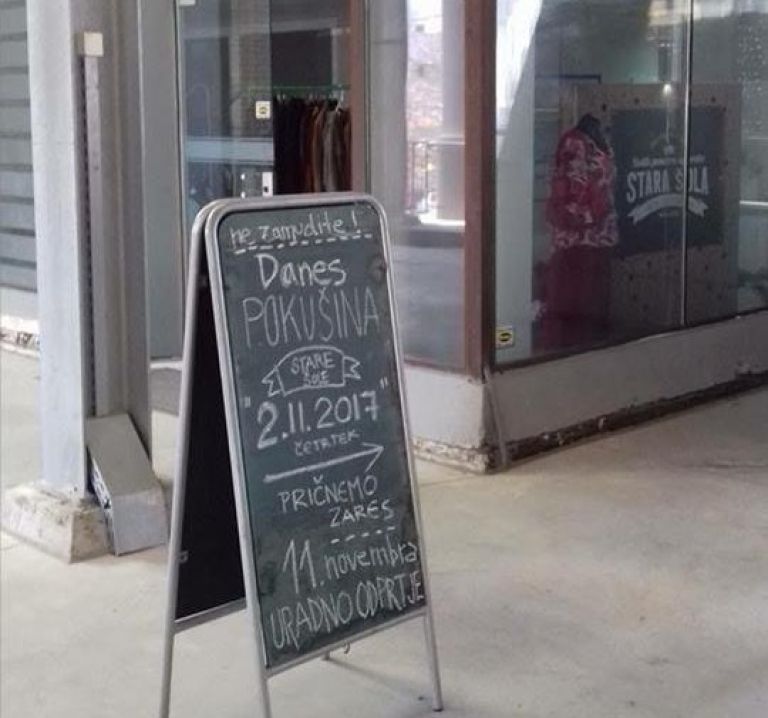 ne zamudite!
Danes
POKUŠINA
STARE
ŠOLE
"2.11.2017"
ČETRTEK
PRIČNEMO
ZARES
11. novembra
URADNO ODPRTJE
STARA ŠOLA